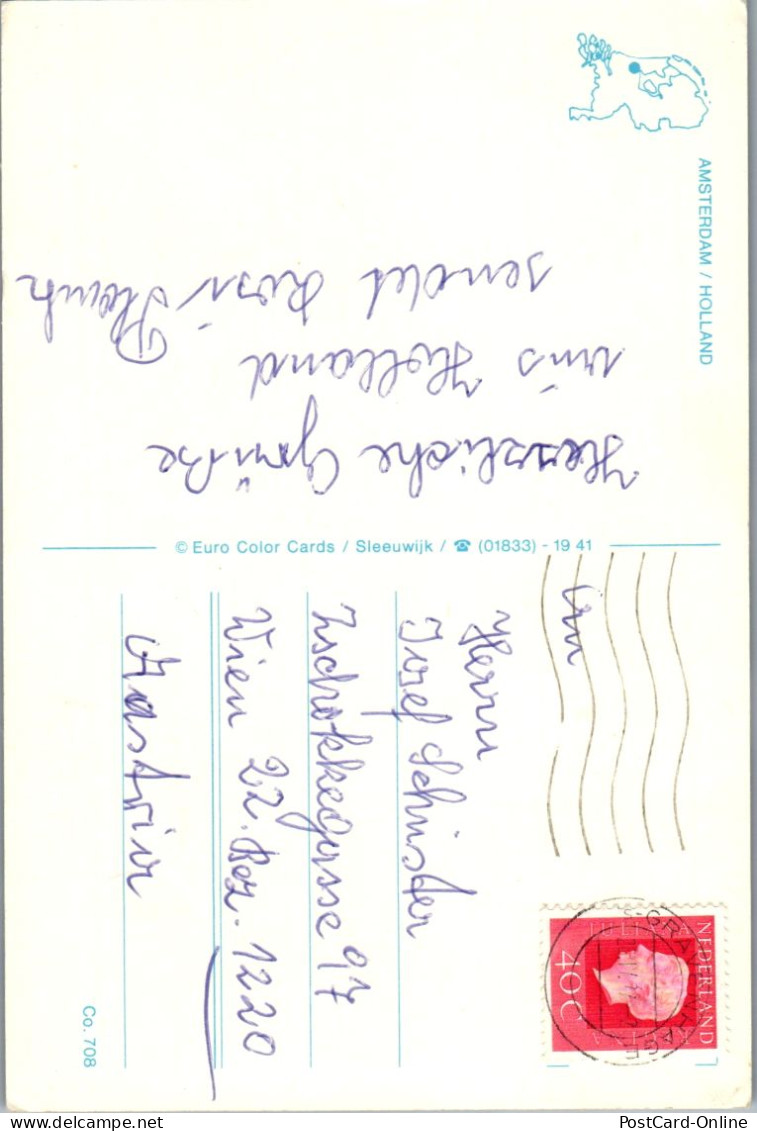 AMSTERDAM / HOLLAND
Herzliche Grüße
aus Holland
sendet Rosi
© Euro Color Cards / Sleeuwijk / ☎ (01833) - 19 41
An
Herrn
Josef Schuster
Zschokkegasse 97
Wien 22. Bez. 1220
Austria
NEDERLAND
40C
'S-GRAVENHAGE
Co. 708
PostCard-Online